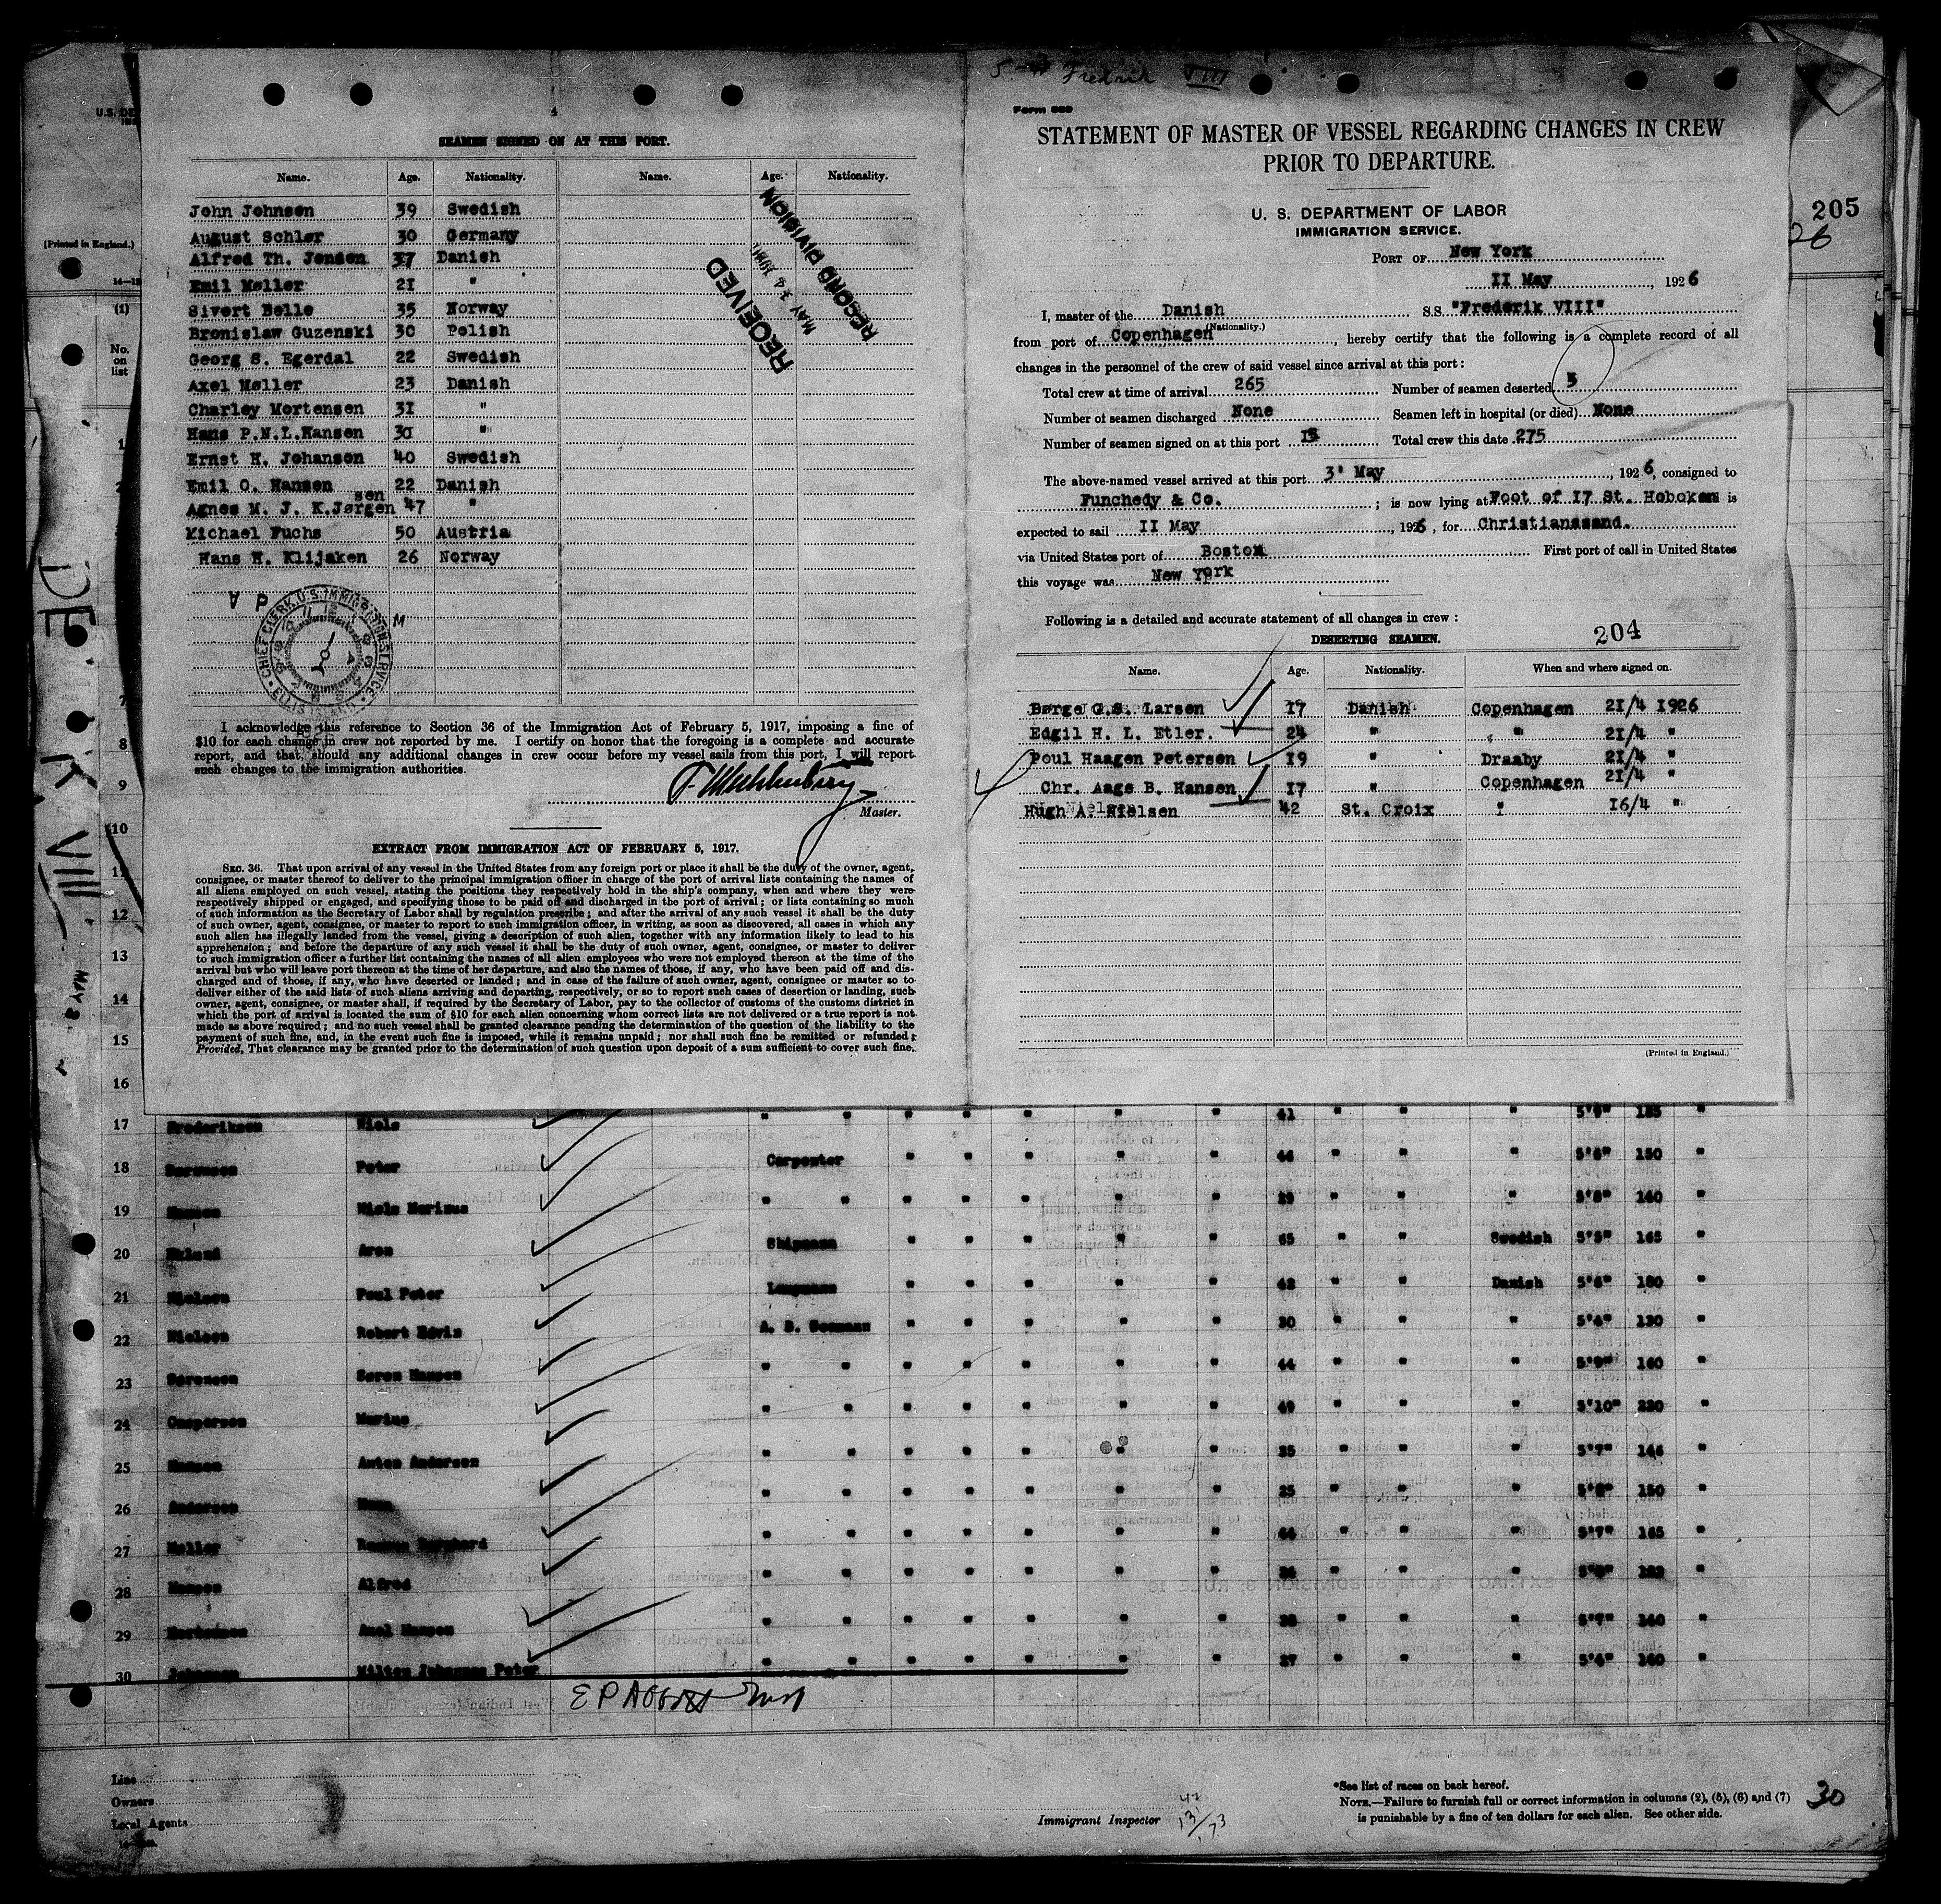 4
SEAMEN SIGNED ON AT THIS PORT.
Name. Age. Nationality. Name. Age. Nationality.
John Johnsen 39 Swedish
August Schler 30 Germany
Alfred Th. Jensen 37 Danish
Emil Møller 21 "
Sivert Belle 35 Norway
Bronislaw Guzenski 30 Polish
Georg S. Egerdal 22 Swedish
Axel Møller 23 Danish
Charley Mortensen 31 "
Hans P.N.L.Hansen 30 "
Ernst H. Johansen 40 Swedish
Emil O. Hansen 22 Danish
Agnes M. J. K.Jørgensen 47 "
Michael Fuchs 50 Austria
Hans H. Klijaken 26 Norway
RECEIVED
MAY 14
RECORD DIVISION
A P M
CHIEF CLERK U.S. IMMIGRATION SERVICE
ELLIS ISLAND
I acknowledge this reference to Section 36 of the Immigration Act of February 5, 1917, imposing a fine of
$10 for each change in crew not reported by me. I certify on honor that the foregoing is a complete and accurate
report, and that, should any additional changes in crew occur before my vessel sails from this port, I will report
such changes to the immigration authorities.
Master.
EXTRACT FROM IMMIGRATION ACT OF FEBRUARY 5, 1917.
SEC. 36. That upon arrival of any vessel in the United States from any foreign port or place it shall be the duty of the owner, agent,
consignee, or master thereof to deliver to the principal immigration officer in charge of the port of arrival lists containing the names of
all aliens employed on such vessel, stating the positions they respectively hold in the ship's company, when and where they were
respectively shipped or engaged, and specifying those to be paid off and discharged in the port of arrival; or lists containing so much
of such information as the Secretary of Labor shall by regulation prescribe; and after the arrival of any such vessel it shall be the duty
of such owner, agent, consignee, or master to report to such immigration officer, in writing, as soon as discovered, all cases in which any
such alien has illegally landed from the vessel, giving a description of such alien, together with any information likely to lead to his
apprehension; and before the departure of any such vessel it shall be the duty of such owner, agent, consignee, or master to deliver
to such immigration officer a further list containing the names of all alien employees who were not employed thereon at the time of the
arrival but who will leave port thereon at the time of her departure, and also the names of those, if any, who have been paid off and dis-
charged and of those, if any, who have deserted or landed; and in case of the failure of such owner, agent, consignee or master so to
deliver either of the said lists of such aliens arriving and departing, respectively, or so to report such cases of desertion or landing, such
owner, agent, consignee, or master shall, if required by the Secretary of Labor, pay to the collector of customs of the customs district in
which the port of arrival is located the sum of $10 for each alien concerning whom correct lists are not delivered or a true report is not
made as above required; and no such vessel shall be granted clearance pending the determination of the question of the liability to the
payment of such fine, and, in the event such fine is imposed, while it remains unpaid; nor shall such fine be remitted or refunded;
Provided, That clearance may be granted prior to the determination of such question upon deposit of a sum sufficient to cover such fine.
Fredrik VIII
Form 689
STATEMENT OF MASTER OF VESSEL REGARDING CHANGES IN CREW
PRIOR TO DEPARTURE.
U. S. DEPARTMENT OF LABOR
IMMIGRATION SERVICE.
PORT OF New York
11 May, 1926
I, master of the Danish S.S. "Frederik VIII"
(Nationality.)
from port of Copenhagen, hereby certify that the following is a complete record of all
changes in the personnel of the crew of said vessel since arrival at this port:
Total crew at time of arrival 265 Number of seamen deserted 5
Number of seamen discharged None Seamen left in hospital (or died) None
Number of seamen signed on at this port Total crew this date 275
The above-named vessel arrived at this port 3' May, 1926, consigned to
Funchedy & Co.; is now lying at Foot of 17 St. Hoboken is
expected to sail 11 May, 1926, for Christianssand.
via United States port of Boston First port of call in United States
this voyage was New York
Following is a detailed and accurate statement of all changes in crew:
DESERTING SEAMEN. 204
Name. Age. Nationality. When and where signed on.
Børge G.S. Larsen 17 Danish Copenhagen 21/4 1926
Edgil H. L. Etler. 24 " " 21/4 "
Poul Haagen Petersen 19 " Draaby 21/4 "
Chr. Aage B. Hansen 17 " Copenhagen 21/4 "
Hugh A. Nielsen 42 St. Croix " 16/4 "
(Printed in England.)
205
26
U.S. DE
(Printed in England.)
(1)
No.
on
list
VIII
MAY 3
7
8
9
10
11
12
13
14
15
16
17 Frederiksen Niels " " " " " " " 41 " " " 5'9" 185 "
18 Sørensen Peter Carpenter " " " " " 44 " " " 5'8" 150 "
19 Hansen Niels Marinus " " " " " " " 29 " " " 5'8" 160 "
20 Aron Shipmann " " " " " 65 " " Swedish 5'5" 165 "
21 Nielsen Poul Peter Lampmann " " " " " 42 " " Danish 5'6" 180 "
22 Nielsen Robert Edvin A. B. Seemann " " " " " 30 " " " 5'4" 130 "
23 Sørensen Søren Hansen " " " " " " " 44 " " " 5'9" 160 "
24 Caspersen Marius " " " " " " " 49 " " " 5'10" 220 "
25 Hansen Anton Andersen " " " " " " " 35 " " " 5'7" 144 "
26 Andersen " " " " " " " 25 " " " 5'8" 150 "
27 Møller Rasmus " " " " " " " 44 " " " 5'7" 165 "
28 Hansen Alfred " " " " " " " " " " "
29 Mortensen Axel Hansen " " " " " " " 38 " " " 5'7" 140 "
30 Johansen Milton Johannes Peter " " " " " " " 27 " " " 5'6" 160 "
Line
Owners
Local Agents
Immigrant Inspector
*See list of races on back hereof.
NOTE.—Failure to furnish full or correct information in columns (2), (5), (6) and (7)
is punishable by a fine of ten dollars for each alien. See other side.
30